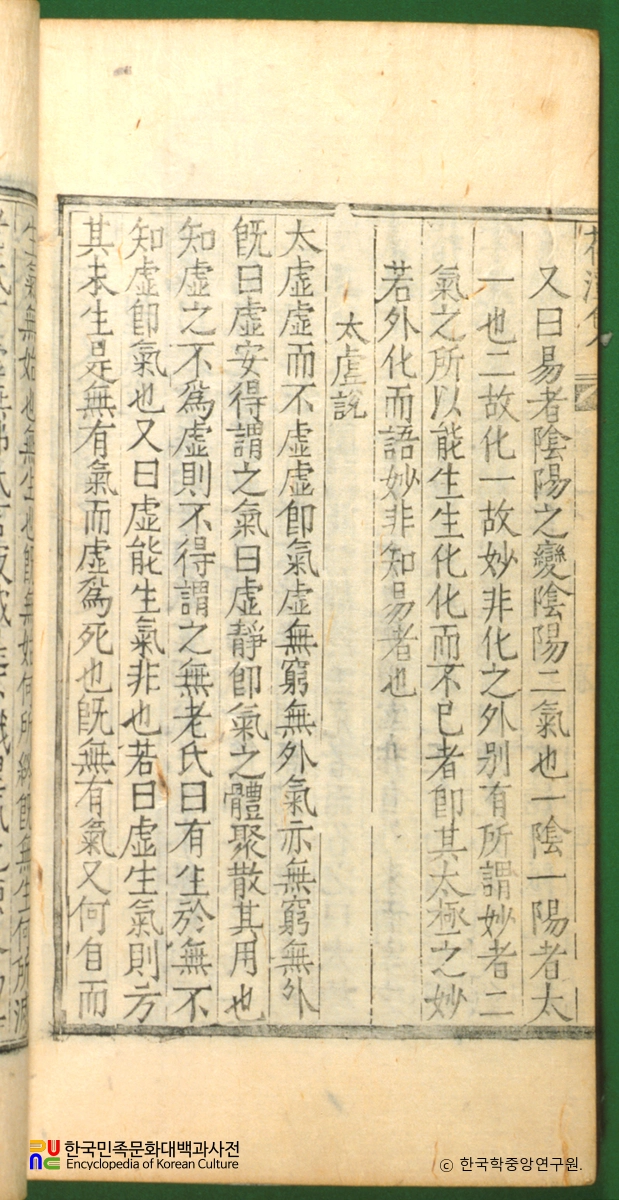 又曰易者陰陽之變陰陽二氣也一陰一陽者太
一也二故化一故妙非化之外别有所謂妙者二
氣之所以能生生化化而不已者卽其太極之妙
若外化而語妙非知易者也
太虛說
太虛虛而不虛虛卽氣虛無窮無外氣亦無窮無外
旣曰虛安得謂之氣曰虛靜卽氣之體聚散其用也
知虛之不爲虛則不得謂之無老氏曰有生於無不
知虛卽氣也又曰虛能生氣非也若曰虛生氣則方
其未生是無有氣而虛爲死也旣無有氣又何自而
生氣無始也無生也旣無始何所終旣無生何所滅
한국민족문화대백과사전
Encyclopedia of Korean Culture
© 한국학중앙연구원.